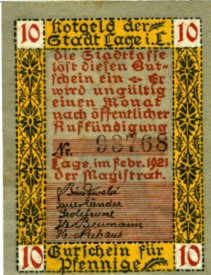 10 Notgeld der 10
Stadt Lage i. L.
Die Stadtkasse
löst diesen Gut-
schein ein - Er
wird ungültig
einen Monat
nach öffentlicher
Aufkündigung
Nr. 93768
Lage, im Febr. 1921
der Magistrat.
10 Gutschein für 10
Pfennige